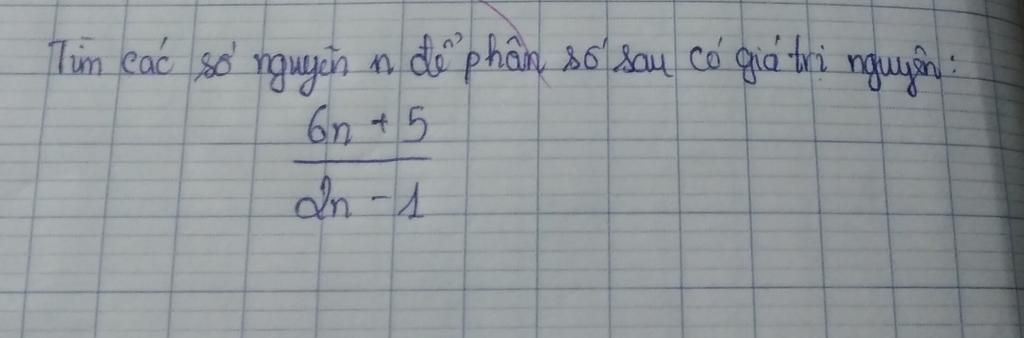 Tìm các số nguyên n để phân số sau có giá trị nguyên:
6n + 5
2n - 1